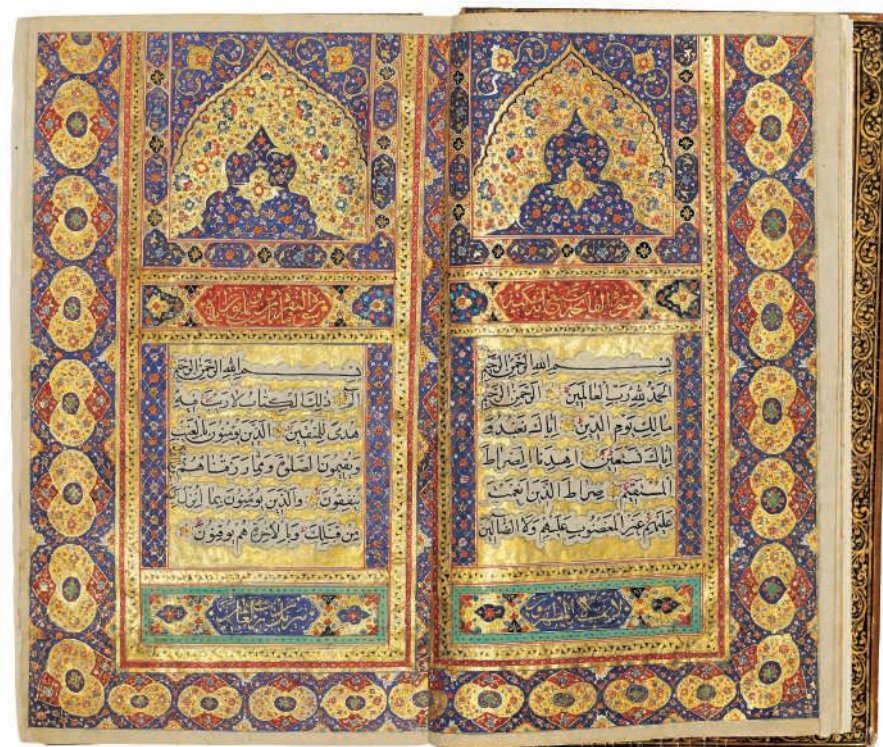 سورة الفاتحة سبع مكية
بسم الله الرحمن الرحيم
الحمد لله رب العالمين الرحمن الرحيم
مالك يوم الدين اياك نعبد و
اياك نستعين اهدنا الصراط
المستقيم صراط الذين انعمت
عليهم غير المغضوب عليهم ولا الضالين
لا يمسه الا المطهرون
بسم الله الرحمن الرحيم
الم ذلك الكتاب لا ريب فيه
هدى للمتقين الذين يؤمنون بالغيب
ويقيمون الصلوة ومما رزقناهم
ينفقون والذين يؤمنون بما انزل
من قبلك وبالاخرة هم يوقنون
تنزيل من رب العالمين